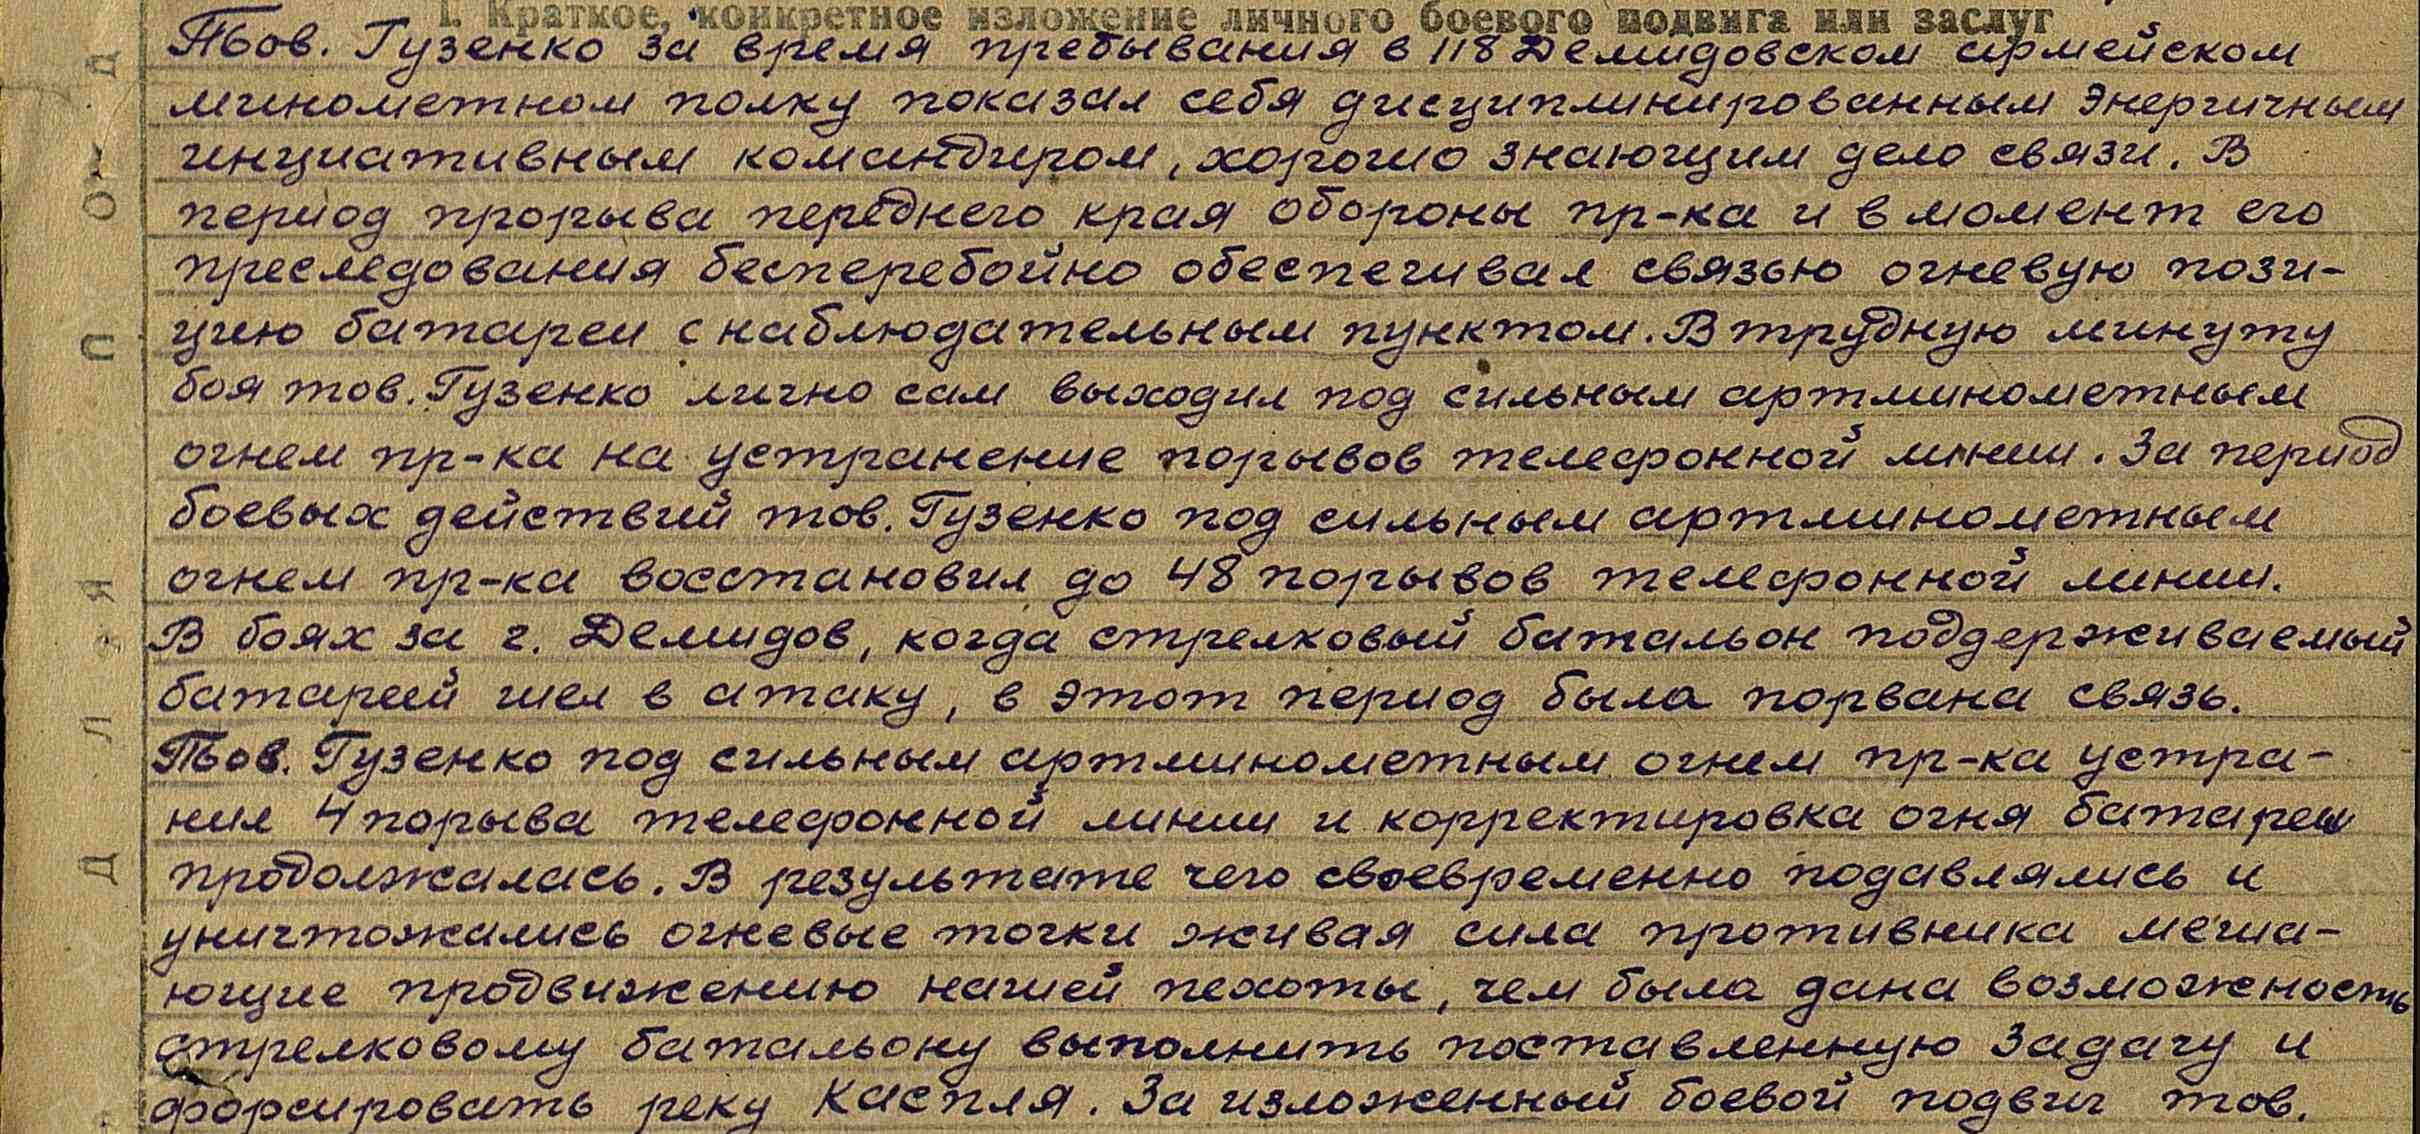 1. Краткое, конкретное изложение личного боевого подвига или заслуг
Тов. Гузенко за время пребывания в 118 Демидовском армейском
минометном полку показал себя дисциплинированным энергичным
инциативным командиром, хорошо знающим дело связи. В
период прорыва переднего края обороны пр-ка и в момент его
преследования бесперебойно обеспечивал связью огневую пози-
цию батареи с наблюдательным пунктом. В трудную минуту
боя тов. Гузенко лично сам выходил под сильным артминометным
огнем пр-ка на устранение порывов телефонной линии. За период
боевых действий тов. Гузенко под сильным артминометным
огнем пр-ка восстановил до 48 порывов телефонной линии.
В боях за г. Демидов, когда стрелковый батальон поддерживаемый
батареей шел в атаку, в этот период была порвана связь.
Тов. Гузенко под сильным артминометным огнем пр-ка устра-
нил 4 порыва телефонной линии и корректировка огня батареи
продолжалась. В результате чего своевременно подавлялись и
уничтожались огневые точки живая сила противника меша-
ющие продвижению нашей пехоты, чем была дана возможность
стрелковому батальону выполнить поставленную задачу и
форсировать реку Каспля. За изложенный боевой подвиг тов.
Д Л Я П О Д